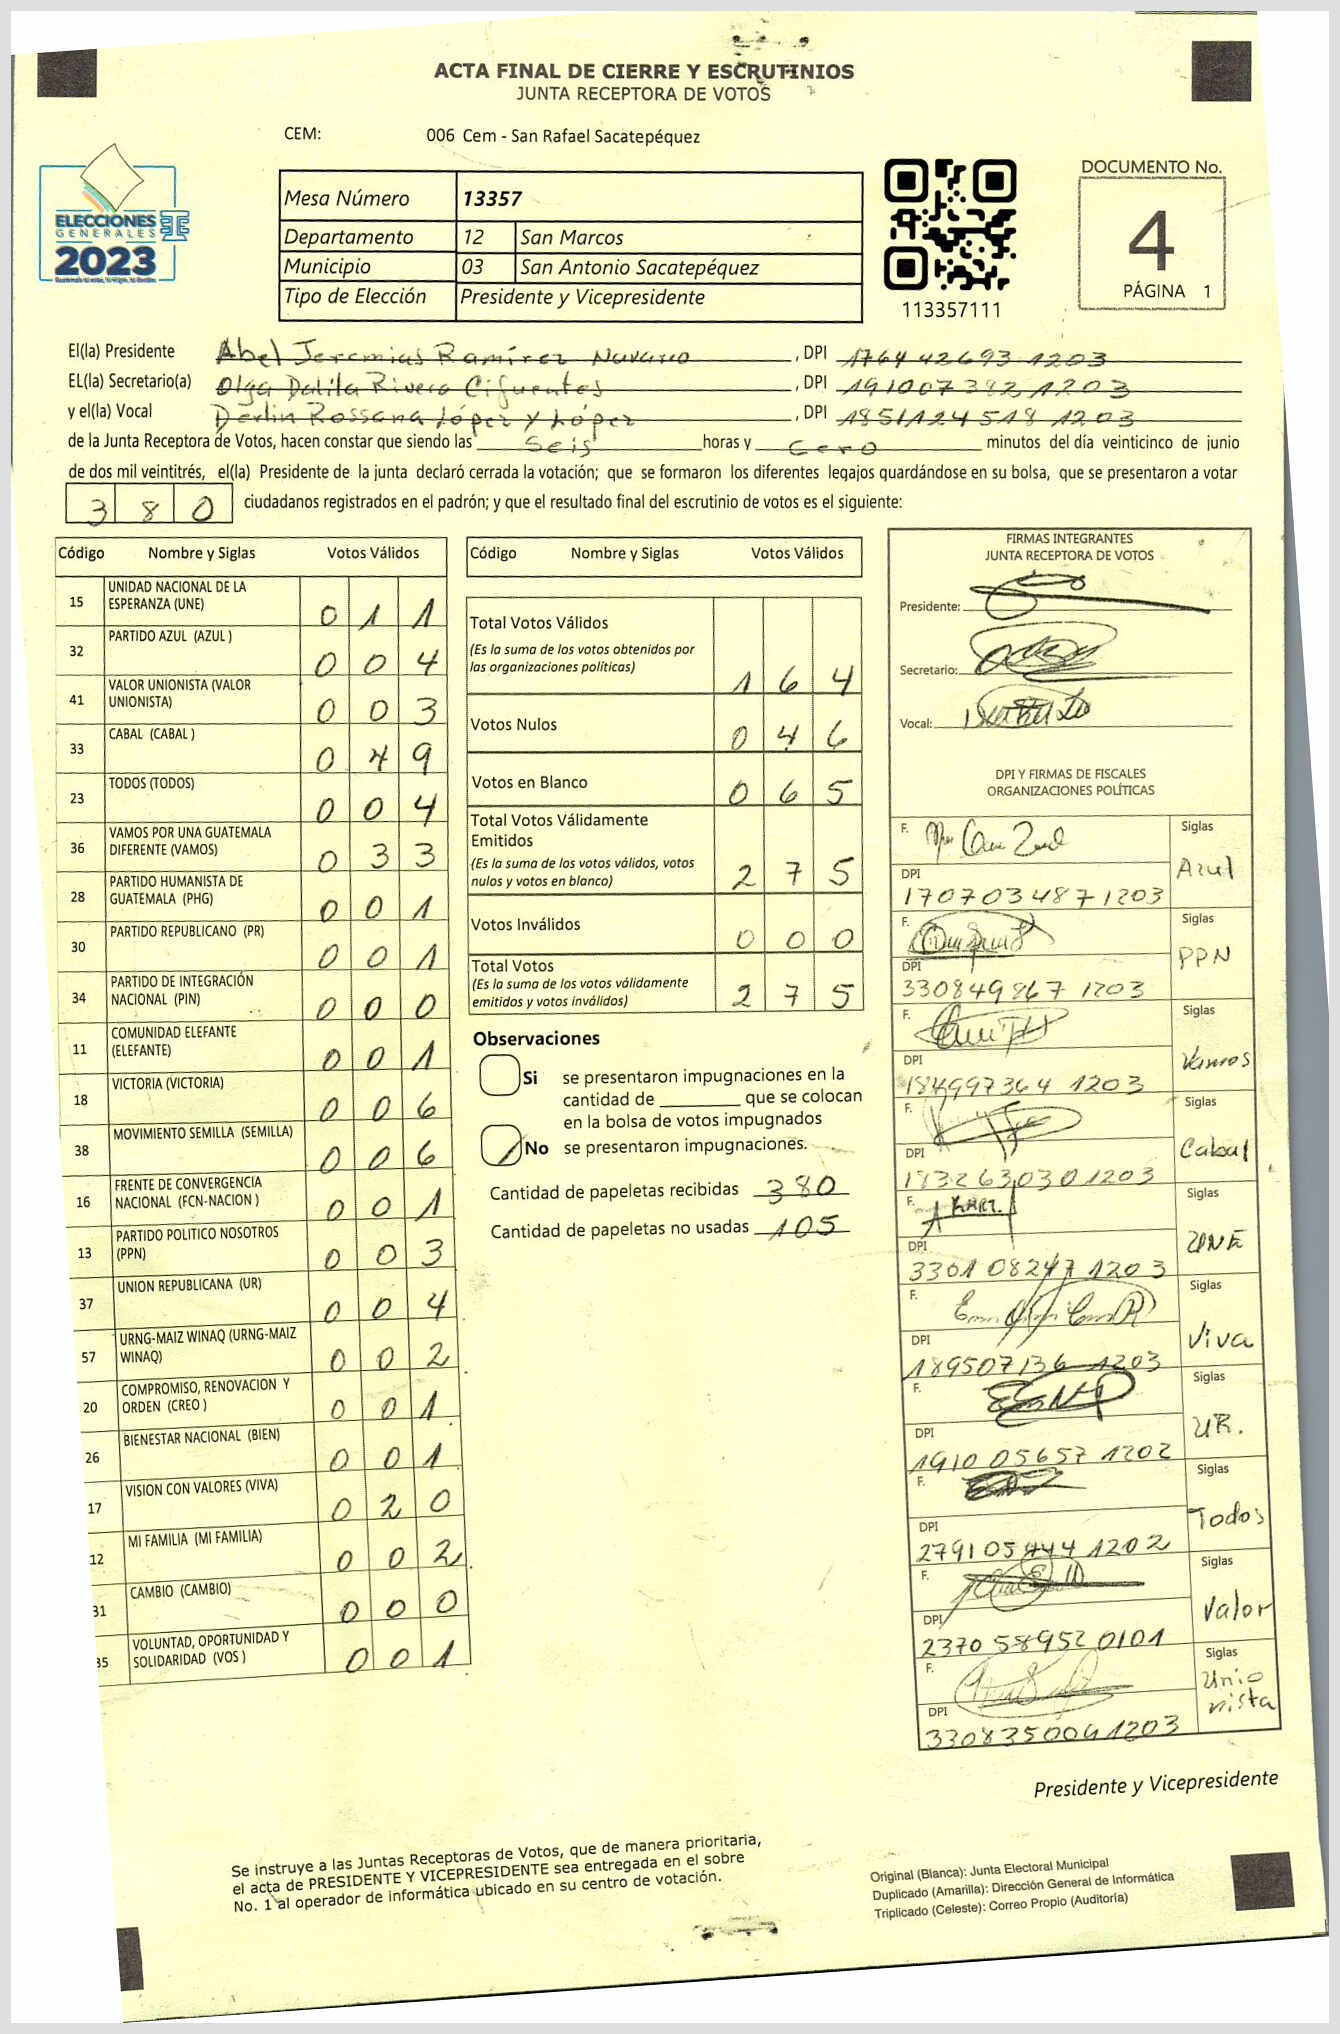 ACTA FINAL DE CIERRE Y ESCRUTINIOS
JUNTA RECEPTORA DE VOTOS
CEM: 006 Cem - San Rafael Sacatepéquez
ELECCIONES
GENERALES
2023
Mesa Número 13357
Departamento 12 San Marcos
Municipio 03 San Antonio Sacatepéquez
Tipo de Elección Presidente y Vicepresidente
113357111
DOCUMENTO No.
4
PÁGINA 1
El(la) Presidente Abel Jeremias Ramírez Navarro, DPI 1764 42693 1203
EL(la) Secretario(a) Olga Dalila Rivera Cifuentes, DPI 191007382 1203
y el(la) Vocal Derlin Rossana López y López, DPI 1851124518 1203
de la Junta Receptora de Votos, hacen constar que siendo las Seis horas y Cero minutos del día veinticinco de junio
de dos mil veintitrés, el(la) Presidente de la junta declaró cerrada la votación; que se formaron los diferentes legajos quardándose en su bolsa, que se presentaron a votar
380 ciudadanos registrados en el padrón; y que el resultado final del escrutinio de votos es el siguiente:
Código Nombre y Siglas Votos Válidos
15 UNIDAD NACIONAL DE LA ESPERANZA (UNE) 0 1 1
32 PARTIDO AZUL (AZUL ) 0 0 4
41 VALOR UNIONISTA (VALOR UNIONISTA) 0 0 3
33 CABAL (CABAL ) 0 4 9
23 TODOS (TODOS) 0 0 4
36 VAMOS POR UNA GUATEMALA DIFERENTE (VAMOS) 0 3 3
28 PARTIDO HUMANISTA DE GUATEMALA (PHG) 0 0 1
30 PARTIDO REPUBLICANO (PR) 0 0 1
34 PARTIDO DE INTEGRACIÓN NACIONAL (PIN) 0 0 0
11 COMUNIDAD ELEFANTE (ELEFANTE) 0 0 1
18 VICTORIA (VICTORIA) 0 0 6
38 MOVIMIENTO SEMILLA (SEMILLA) 0 0 6
16 FRENTE DE CONVERGENCIA NACIONAL (FCN-NACION ) 0 0 1
13 PARTIDO POLITICO NOSOTROS (PPN) 0 0 3
37 UNION REPUBLICANA (UR) 0 0 4
57 URNG-MAIZ WINAQ (URNG-MAIZ WINAQ) 0 0 2
20 COMPROMISO, RENOVACION Y ORDEN (CREO ) 0 0 1
26 BIENESTAR NACIONAL (BIEN) 0 0 1
17 VISION CON VALORES (VIVA) 0 2 0
12 MI FAMILIA (MI FAMILIA) 0 0 2
31 CAMBIO (CAMBIO) 0 0 0
35 VOLUNTAD, OPORTUNIDAD Y SOLIDARIDAD (VOS ) 0 0 1
Código Nombre y Siglas Votos Válidos
Total Votos Válidos
(Es la suma de los votos obtenidos por
las organizaciones políticas) 1 6 4
Votos Nulos 0 4 6
Votos en Blanco 0 6 5
Total Votos Válidamente
Emitidos
(Es la suma de los votos válidos, votos
nulos y votos en blanco) 2 7 5
Votos Inválidos 0 0 0
Total Votos
(Es la suma de los votos válidamente
emitidos y votos inválidos) 2 7 5
Observaciones
Si se presentaron impugnaciones en la
cantidad de ________ que se colocan
en la bolsa de votos impugnados
No se presentaron impugnaciones.
Cantidad de papeletas recibidas 380
Cantidad de papeletas no usadas 105
FIRMAS INTEGRANTES
JUNTA RECEPTORA DE VOTOS
Presidente:
Secretario:
Vocal:
DPI Y FIRMAS DE FISCALES
ORGANIZACIONES POLÍTICAS
F. Siglas Azul
DPI 170703487 1203
F. Siglas PPN
DPI 330849867 1203
F. Siglas Vamos
DPI 184997364 1203
F. Siglas Cabal
DPI 183263030 1203
F. Siglas UNE
DPI 3301 08247 1203
F. Siglas Viva
DPI 189507136 1203
F. Siglas UR.
DPI 1910 05657 1202
F. Siglas Todos
DPI 279105444 1202
F. Siglas Valor
DPI 2370 58952 0101
F. Siglas Unionista
DPI 330835004 1203
Presidente y Vicepresidente
Se instruye a las Juntas Receptoras de Votos, que de manera prioritaria,
el acta de PRESIDENTE Y VICEPRESIDENTE sea entregada en el sobre
No. 1 al operador de informática ubicado en su centro de votación.
Original (Blanca): Junta Electoral Municipal
Duplicado (Amarilla): Dirección General de Informática
Triplicado (Celeste): Correo Propio (Auditoría)